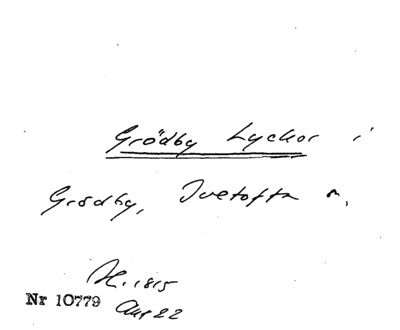 Grödby Lyckor i
Grödby, Ivetofta n,
H. 1815
Nr 10779 Akt 22